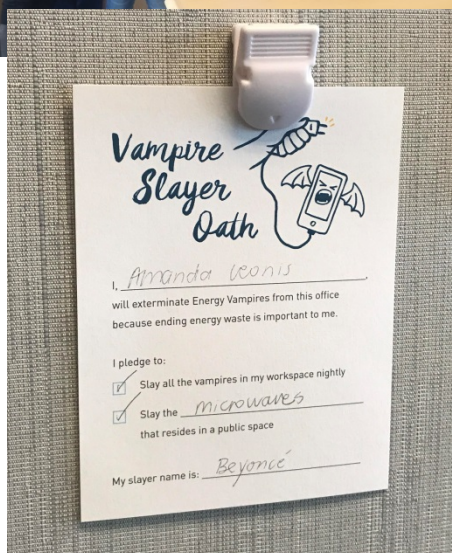 Vampire
Slayer
Oath
I, Amanda Leonis,
will exterminate Energy Vampires from this office
because ending energy waste is important to me.
I pledge to:
Slay all the vampires in my workspace nightly
Slay the microwaves
that resides in a public space
My slayer name is: Beyoncé